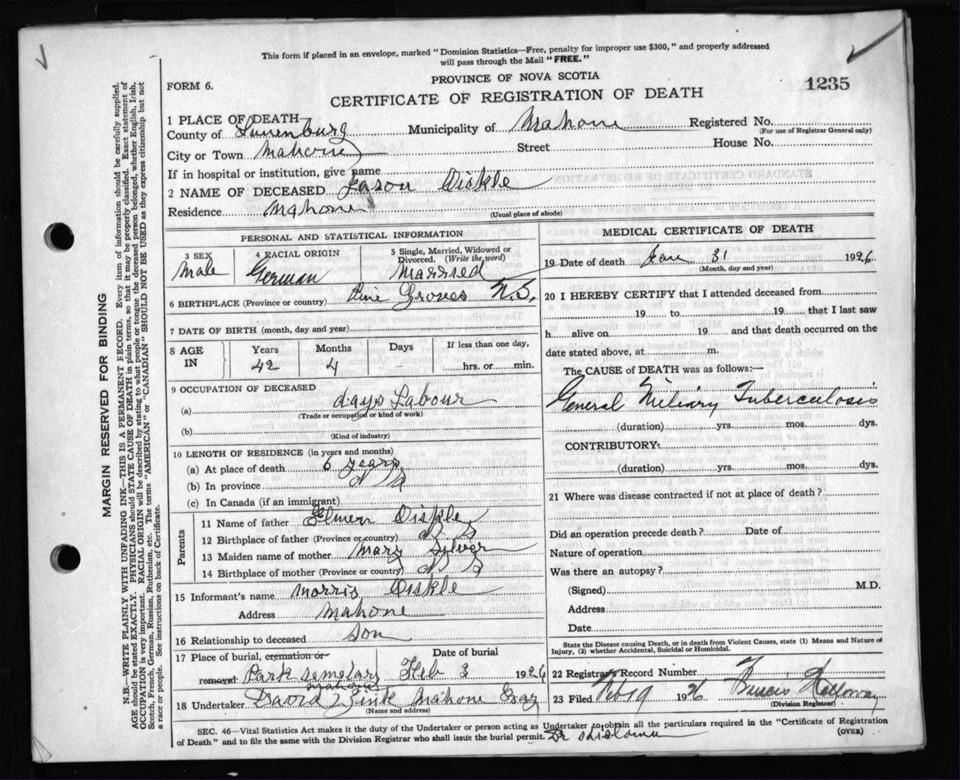 This form if placed in an envelope, marked "Dominion Statistics—Free, penalty for improper use $300," and properly addressed
will pass through the Mail "FREE."
PROVINCE OF NOVA SCOTIA
FORM 6.
CERTIFICATE OF REGISTRATION OF DEATH
1235
MARGIN RESERVED FOR BINDING
N.B.—WRITE PLAINLY WITH UNFADING INK—THIS IS A PERMANENT RECORD. Every item of information should be carefully supplied.
AGE should be stated EXACTLY. PHYSICIANS should STATE CAUSE OF DEATH in plain terms, so that it may be properly classified. Exact statement of
OCCUPATION is very important. RACIAL ORIGIN will be described by stating to what people or tongue the deceased person belonged, whether English, Irish,
Scotch, French, German, Russian, Ruthenian, etc. The terms "AMERICAN" or "CANADIAN" SHOULD NOT BE USED as they express citizenship but not
a race or people. See instructions on back of Certificate.
1 PLACE OF DEATH
County of Lunenburg Municipality of Mahone Registered No.
(For use of Registrar General only)
City or Town Mahone Street House No.
If in hospital or institution, give name
2 NAME OF DECEASED Jason Diskle
Residence Mahone
(Usual place of abode)
PERSONAL AND STATISTICAL INFORMATION
3 SEX Male
4 RACIAL ORIGIN German
5 Single, Married, Widowed or Divorced. (Write the word) Married
6 BIRTHPLACE (Province or country) Pine Groves N.S.
7 DATE OF BIRTH (month, day and year)
8 AGE IN Years 42 Months 4 Days – If less than one day, hrs. or min.
9 OCCUPATION OF DECEASED
(a) days Labour
(Trade or occupation or kind of work)
(b)
(Kind of industry)
10 LENGTH OF RESIDENCE (in years and months)
(a) At place of death 6 years
(b) In province
(c) In Canada (if an immigrant)
Parents
11 Name of father Elmen Diskle
12 Birthplace of father (Province or country) N S
13 Maiden name of mother Mary Silver
14 Birthplace of mother (Province or country) N S
15 Informant's name Morris Diskle
Address Mahone
16 Relationship to deceased Son
17 Place of burial, cremation or removal Date of burial
Park Mahone Feb 3 1926
18 Undertaker David Zink Mahone Bay
(Name and address)
MEDICAL CERTIFICATE OF DEATH
19 Date of death Jan 31 1926
(Month, day and year)
20 I HEREBY CERTIFY that I attended deceased from
19 to 19 that I last saw
h alive on 19 and that death occurred on
date stated above, at m.
The CAUSE OF DEATH was as follows:—
General Miliary Tuberculosis
(duration) yrs. mos. dys.
CONTRIBUTORY:
(duration) yrs. mos. dys.
21 Where was disease contracted if not at place of death?
Did an operation precede death? Date of
Nature of operation
Was there an autopsy?
(Signed) M.D.
Address
Date
State the Disease causing Death, or in death from Violent Causes, state (1) Means and Nature of
Injury, (2) whether Accidental, Suicidal or Homicidal.
22 Registrar's Record Number
23 Filed Feb 9 1926 Francis Holloway
(Division Registrar)
SEC. 46—Vital Statistics Act makes it the duty of the Undertaker or person acting as Undertaker to obtain all the particulars required in the "Certificate of Registration
of Death" and to file the same with the Division Registrar who shall issue the burial permit. Dr
(OVER)